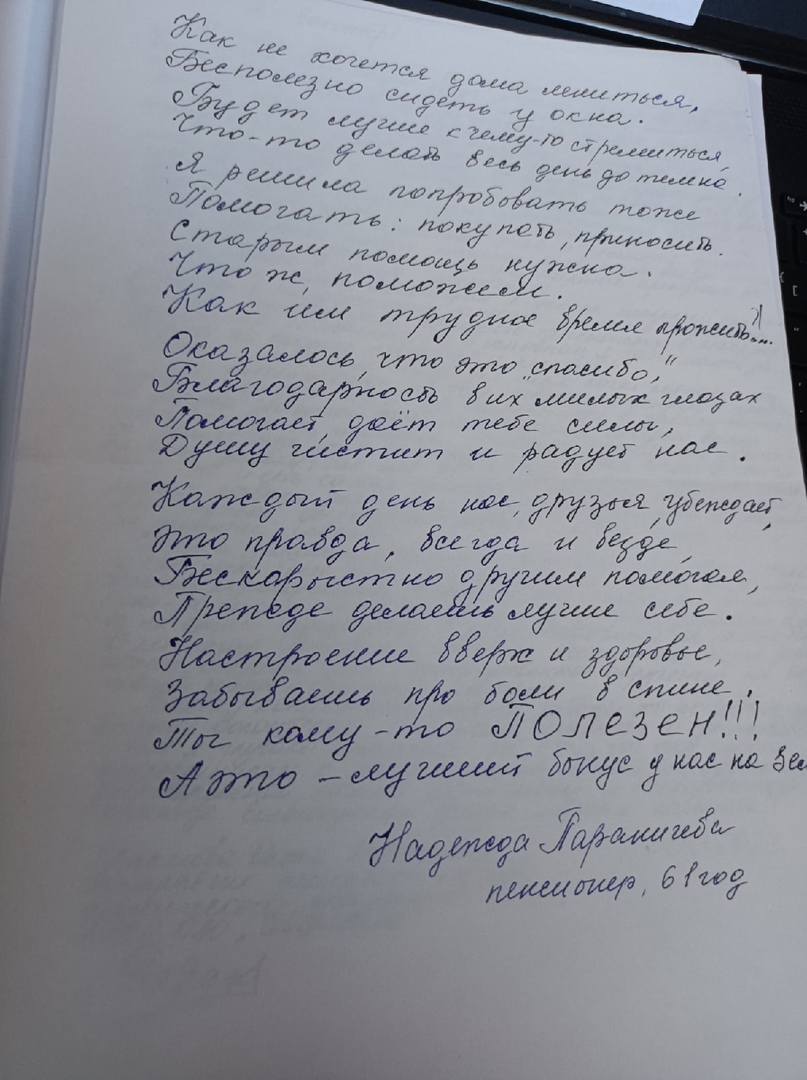 Как не хочется дома лениться,
Бесполезно сидеть у окна.
Будет лучше к чему-то стремиться,
Что-то делать весь день до темна.
Я решила попробовать тоже
Помогать: покупать, приносить.
Старым помощь нужна.
Что ж, поможем.
Как им трудное время прожить?...
Оказалось, что это „спасибо,"
Благодарность в их милых глазах
Помогает, даёт тебе силы,
Душу чистит и радует нас.
Каждый день нас, друзья, убеждает,
Это правда, всегда и везде,
Бескорыстно другим помогая,
Прежде делаешь лучше себе.
Настроение вверх и здоровье,
Забываешь про боли в спине.
Ты кому-то ПОЛЕЗЕН!!!
А это – лучший бонус у нас на Зем
Надежда
пенсионер, 61 год